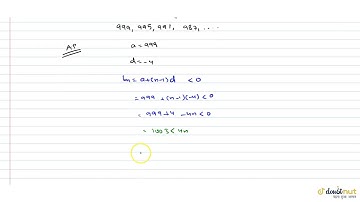 999, 995, 991, 987, ....
AP
a = 999
d = -4
tn = a+(n-1)d < 0
= 999 + (n-1)(-4) < 0
= 999+4 -4n < 0
= 1003 < 4n
doubtnut